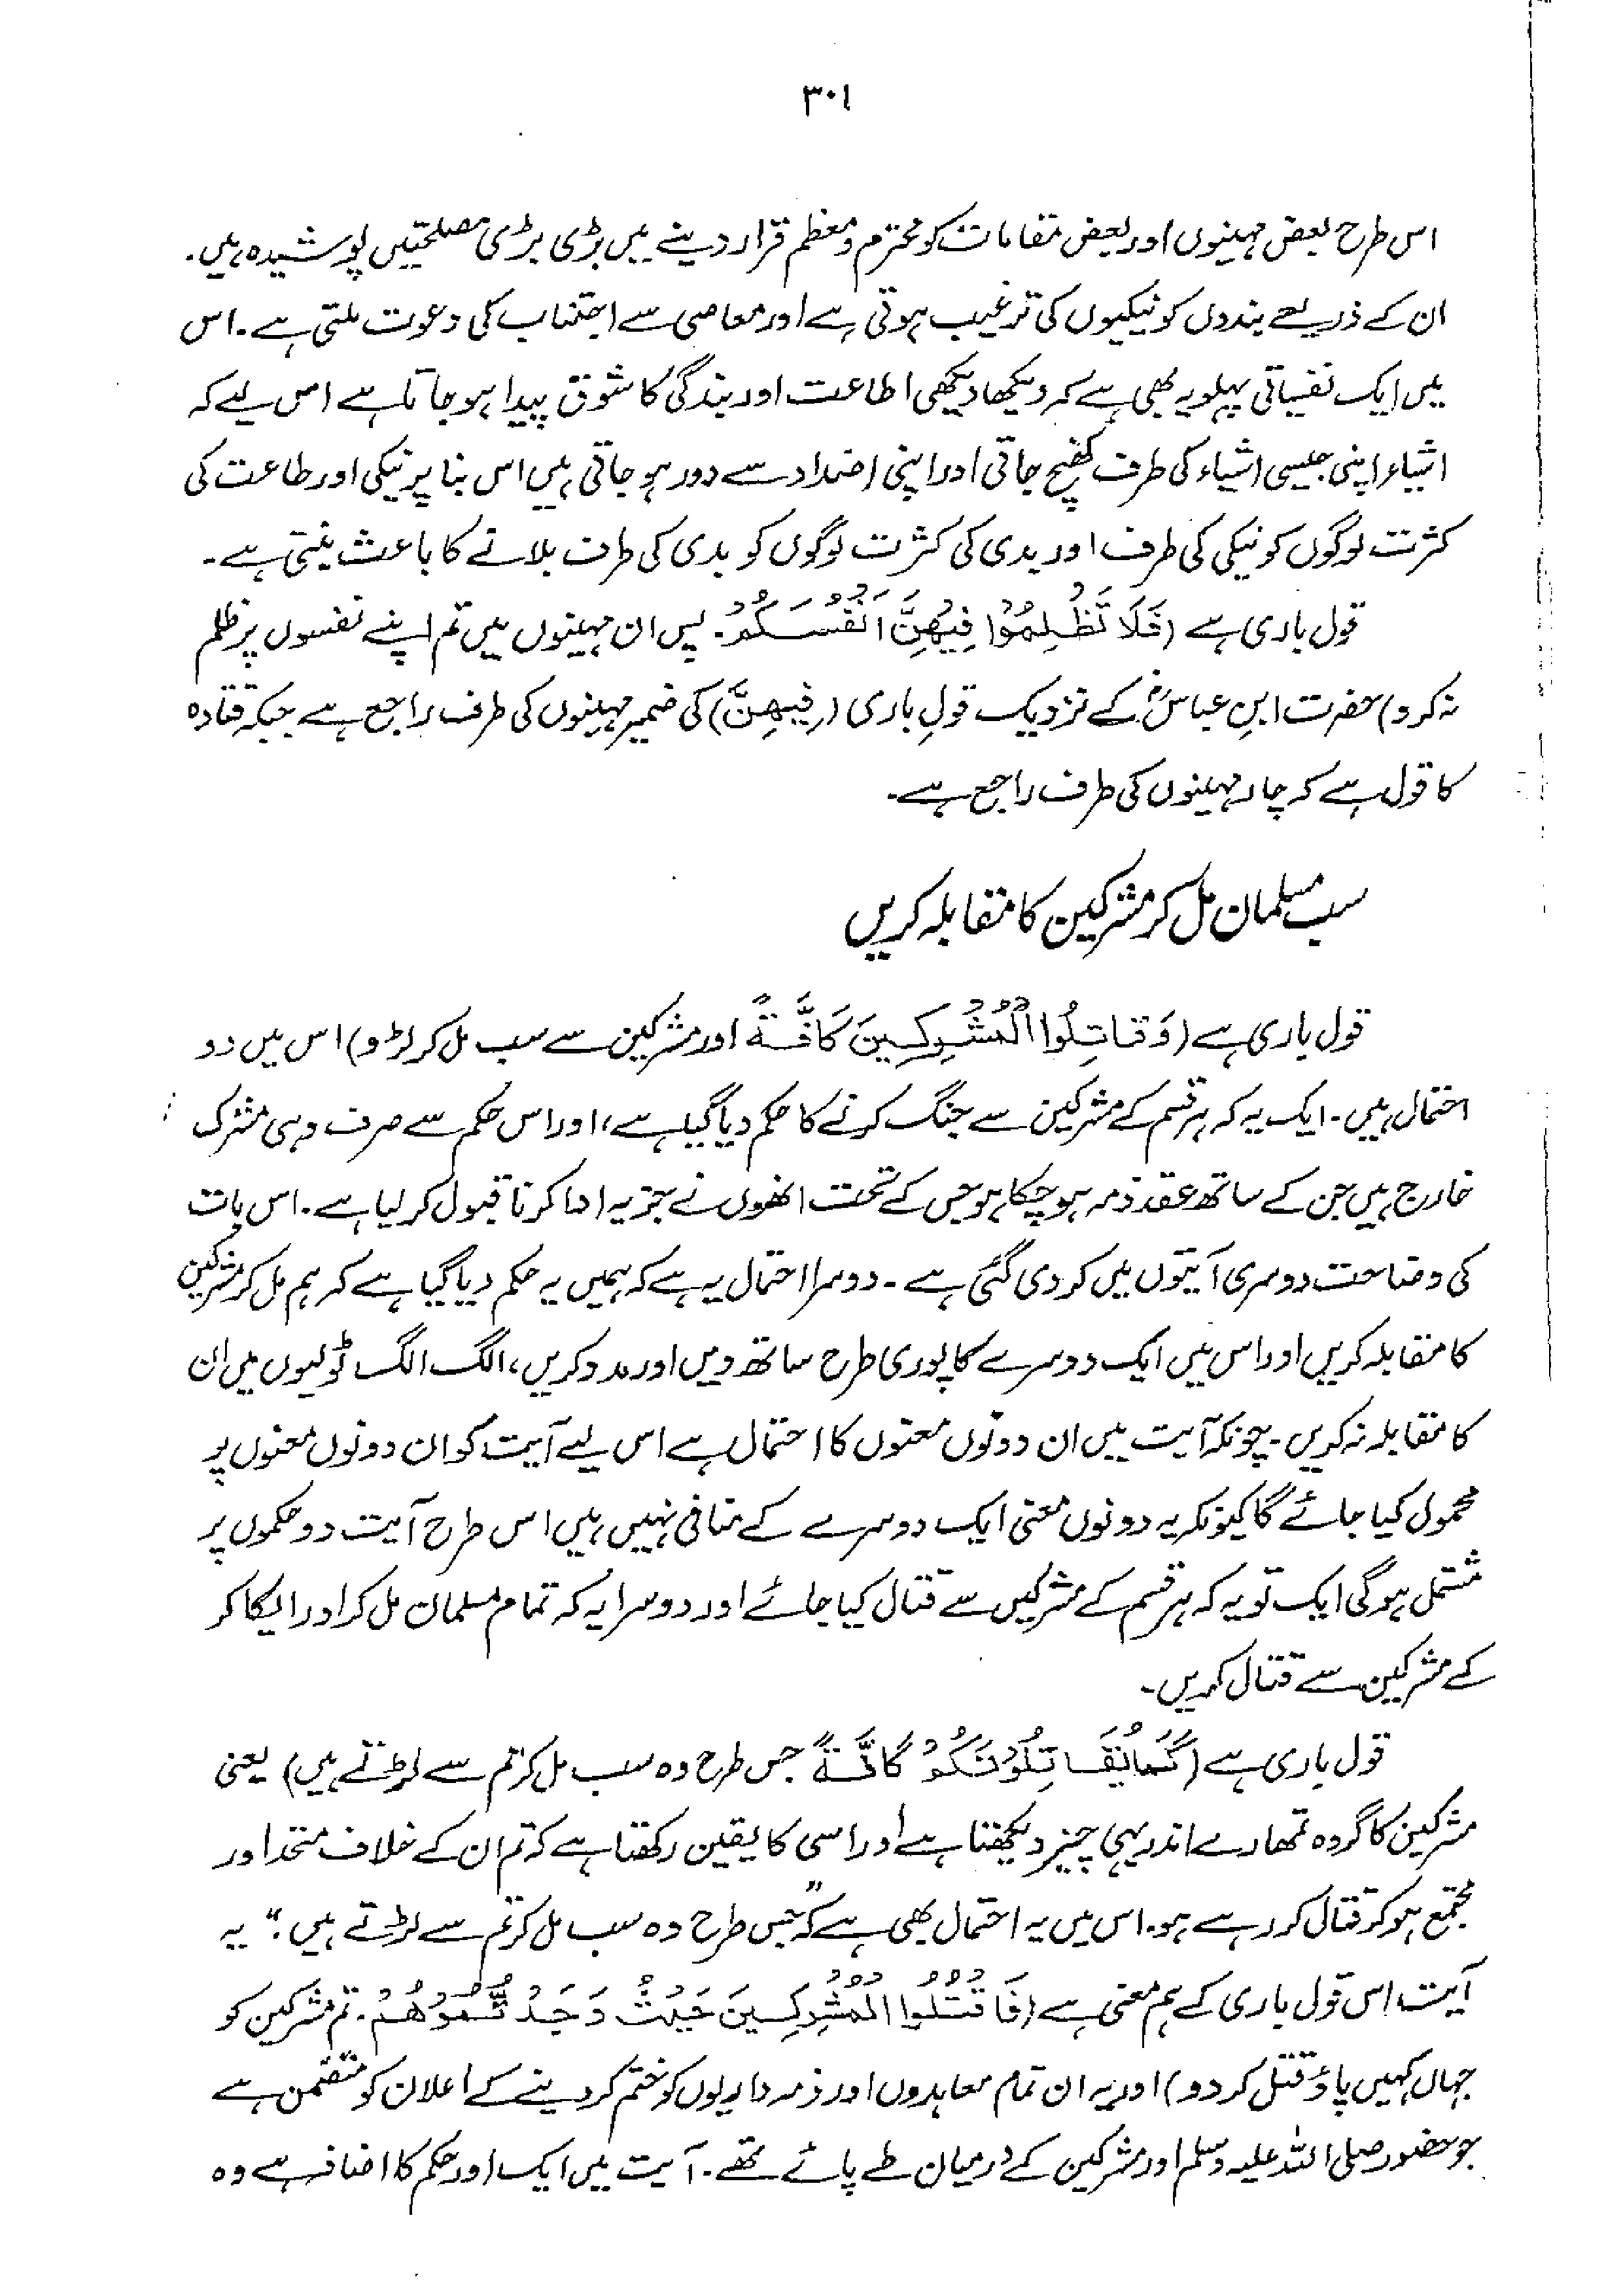 ۳۰۱
اس طرح بعض مہینوں اور بعض مقامات کو محترم و معظم قرار دینے میں بڑی بڑی مصلحتیں پوشیدہ ہیں۔
ان کے ذریعے بندوں کو نیکیوں کی ترغیب ہوتی ہے اور معاصی سے اجتناب کی دعوت ملتی ہے۔ اس
میں ایک نفسیاتی پہلو یہ بھی ہے کہ دیکھا دیکھی اطاعت اور بندگی کا شوق پیدا ہو جاتا ہے اس لیے کہ
اشیاء اپنی جیسی اشیاء کی طرف کھنچ جاتی اور اپنی اضداد سے دور ہو جاتی ہیں اس بنا پر نیکی اور طاعت کی
کثرت لوگوں کو نیکی کی طرف اور بدی کی کثرت لوگوں کو بدی کی طرف بلانے کا باعث بنتی ہے۔
قول باری ہے (فَلَا تَظْلِمُوْا فِیْهِنَّ اَنْفُسَكُمْ۔ پس ان مہینوں میں تم اپنے نفسوں پر ظلم
نہ کرو) حضرت ابنِ عباسؓ کے نزدیک قولِ باری (فِیْهِنَّ) کی ضمیر مہینوں کی طرف راجع ہے جبکہ قتادہ
کا قول ہے کہ چار مہینوں کی طرف راجع ہے۔
سب مسلمان مل کر مشرکین کا مقابلہ کریں
قول باری ہے (وَقَاتِلُوا الْمُشْرِكِيْنَ كَافَّةً اور مشرکین سے سب مل کر لڑو) اس میں دو
احتمال ہیں۔ ایک یہ کہ ہر قسم کے مشرکین سے جنگ کرنے کا حکم دیا گیا ہے، اور اس حکم سے صرف وہی مشرک
خارج ہیں جن کے ساتھ عقد ذمہ ہو چکا ہو جس کے تحت انھوں نے جزیہ ادا کرنا قبول کر لیا ہے۔ اس بات
کی وضاحت دوسری آیتوں میں کر دی گئی ہے۔ دوسرا احتمال یہ ہے کہ ہمیں یہ حکم دیا گیا ہے کہ ہم مل کر مشرکین
کا مقابلہ کریں اور اس میں ایک دوسرے کا پوری طرح ساتھ دیں اور مدد کریں، الگ الگ ٹولیوں میں ان
کا مقابلہ نہ کریں۔ چونکہ آیت میں ان دونوں معنوں کا احتمال ہے اس لیے آیت کو ان دونوں معنوں پر
محمول کیا جائے گا کیونکہ یہ دونوں معنی ایک دوسرے کے منافی نہیں ہیں اس طرح آیت دو حکموں پر
مشتمل ہوگی ایک تو یہ کہ ہر قسم کے مشرکین سے قتال کیا جائے اور دوسرا یہ کہ تمام مسلمان مل کر اور ایکا کر
کے مشرکین سے قتال کریں۔
قول باری ہے (كَمَا يُقَاتِلُوْنَكُمْ كَافَّةً جس طرح وہ سب مل کر تم سے لڑتے ہیں) یعنی
مشرکین کا گروہ تمھارے اندر یہی چیز دیکھتا ہے اور اسی کا یقین رکھتا ہے کہ تم ان کے خلاف متحد اور
مجتمع ہو کر قتال کر رہے ہو۔ اس میں یہ احتمال بھی ہے کہ "جس طرح وہ سب مل کر تم سے لڑتے ہیں"۔ یہ
آیت اس قول باری کے ہم معنی ہے (فَاقْتُلُوا الْمُشْرِكِيْنَ حَيْثُ وَجَدْتُّمُوْهُمْ۔ تم مشرکین کو
جہاں کہیں پاؤ قتل کر دو) اور یہ ان تمام معاہدوں اور ذمہ داریوں کو ختم کر دینے کے اعلان کو متضمن ہے
جو حضور صلی اللہ علیہ وسلم اور مشرکین کے درمیان طے پائے تھے۔ آیت میں ایک اور حکم کا اضافہ ہے وہ